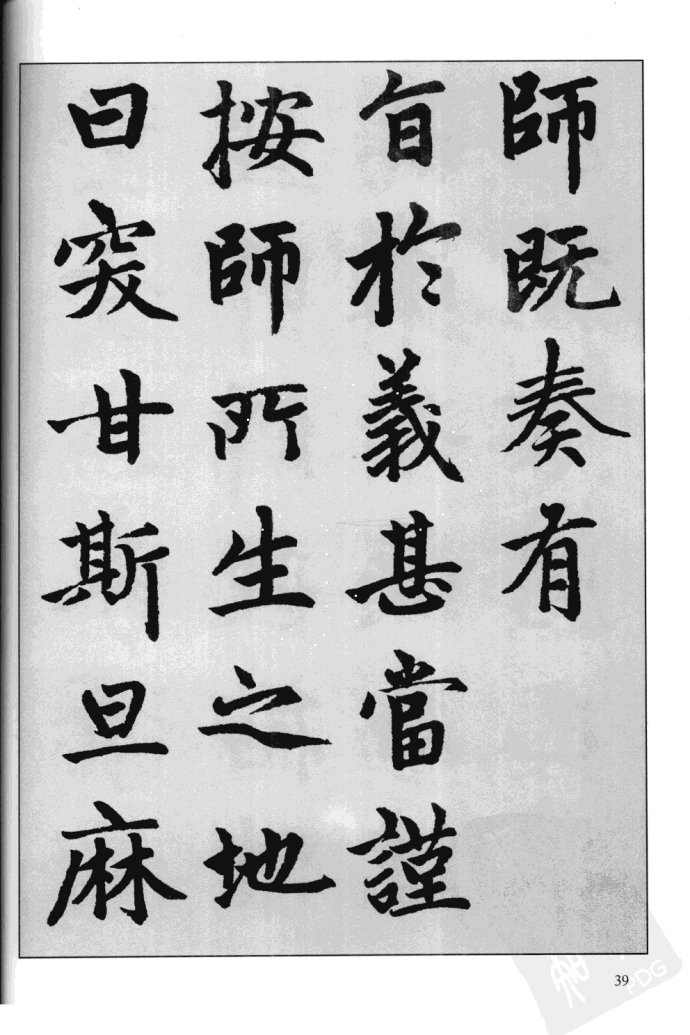 師既奏有
旨於義甚當謹
按師所生之地
曰突甘斯旦麻
39
PDG